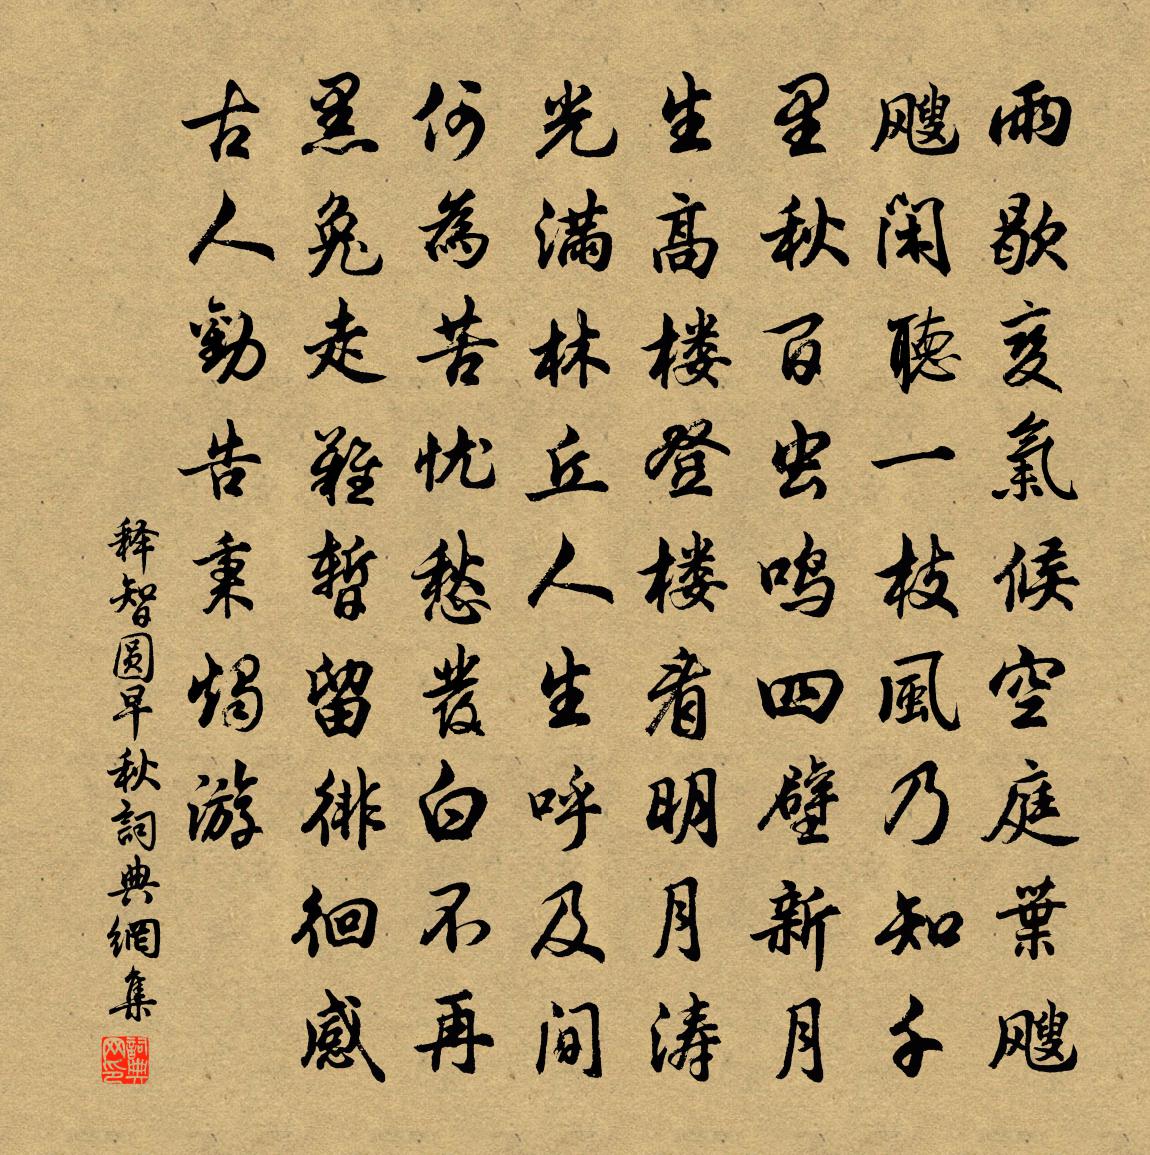 雨歇变氣候空庭葉飕
飕闲聽一枝風乃知千
里秋百虫鸣四壁新月
生高楼登楼看明月涛
光满林丘人生呼及间
何為苦忧愁發白不再
黑兔走難暫留徘徊感
古人勸告秉燭游
释智圆早秋詞典網集
詞典网印